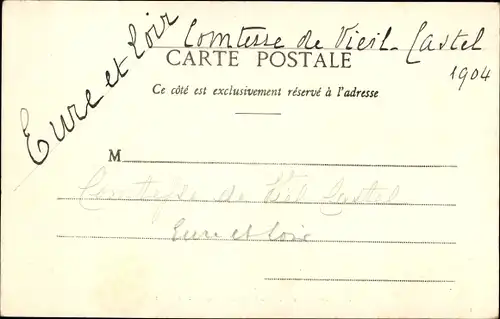 Eure et Loir
Comtesse de Vieil-Castel
1904
CARTE POSTALE
Ce côté est exclusivement réservé à l'adresse
M
Comtesse de Viel Castel
Eure et Loir